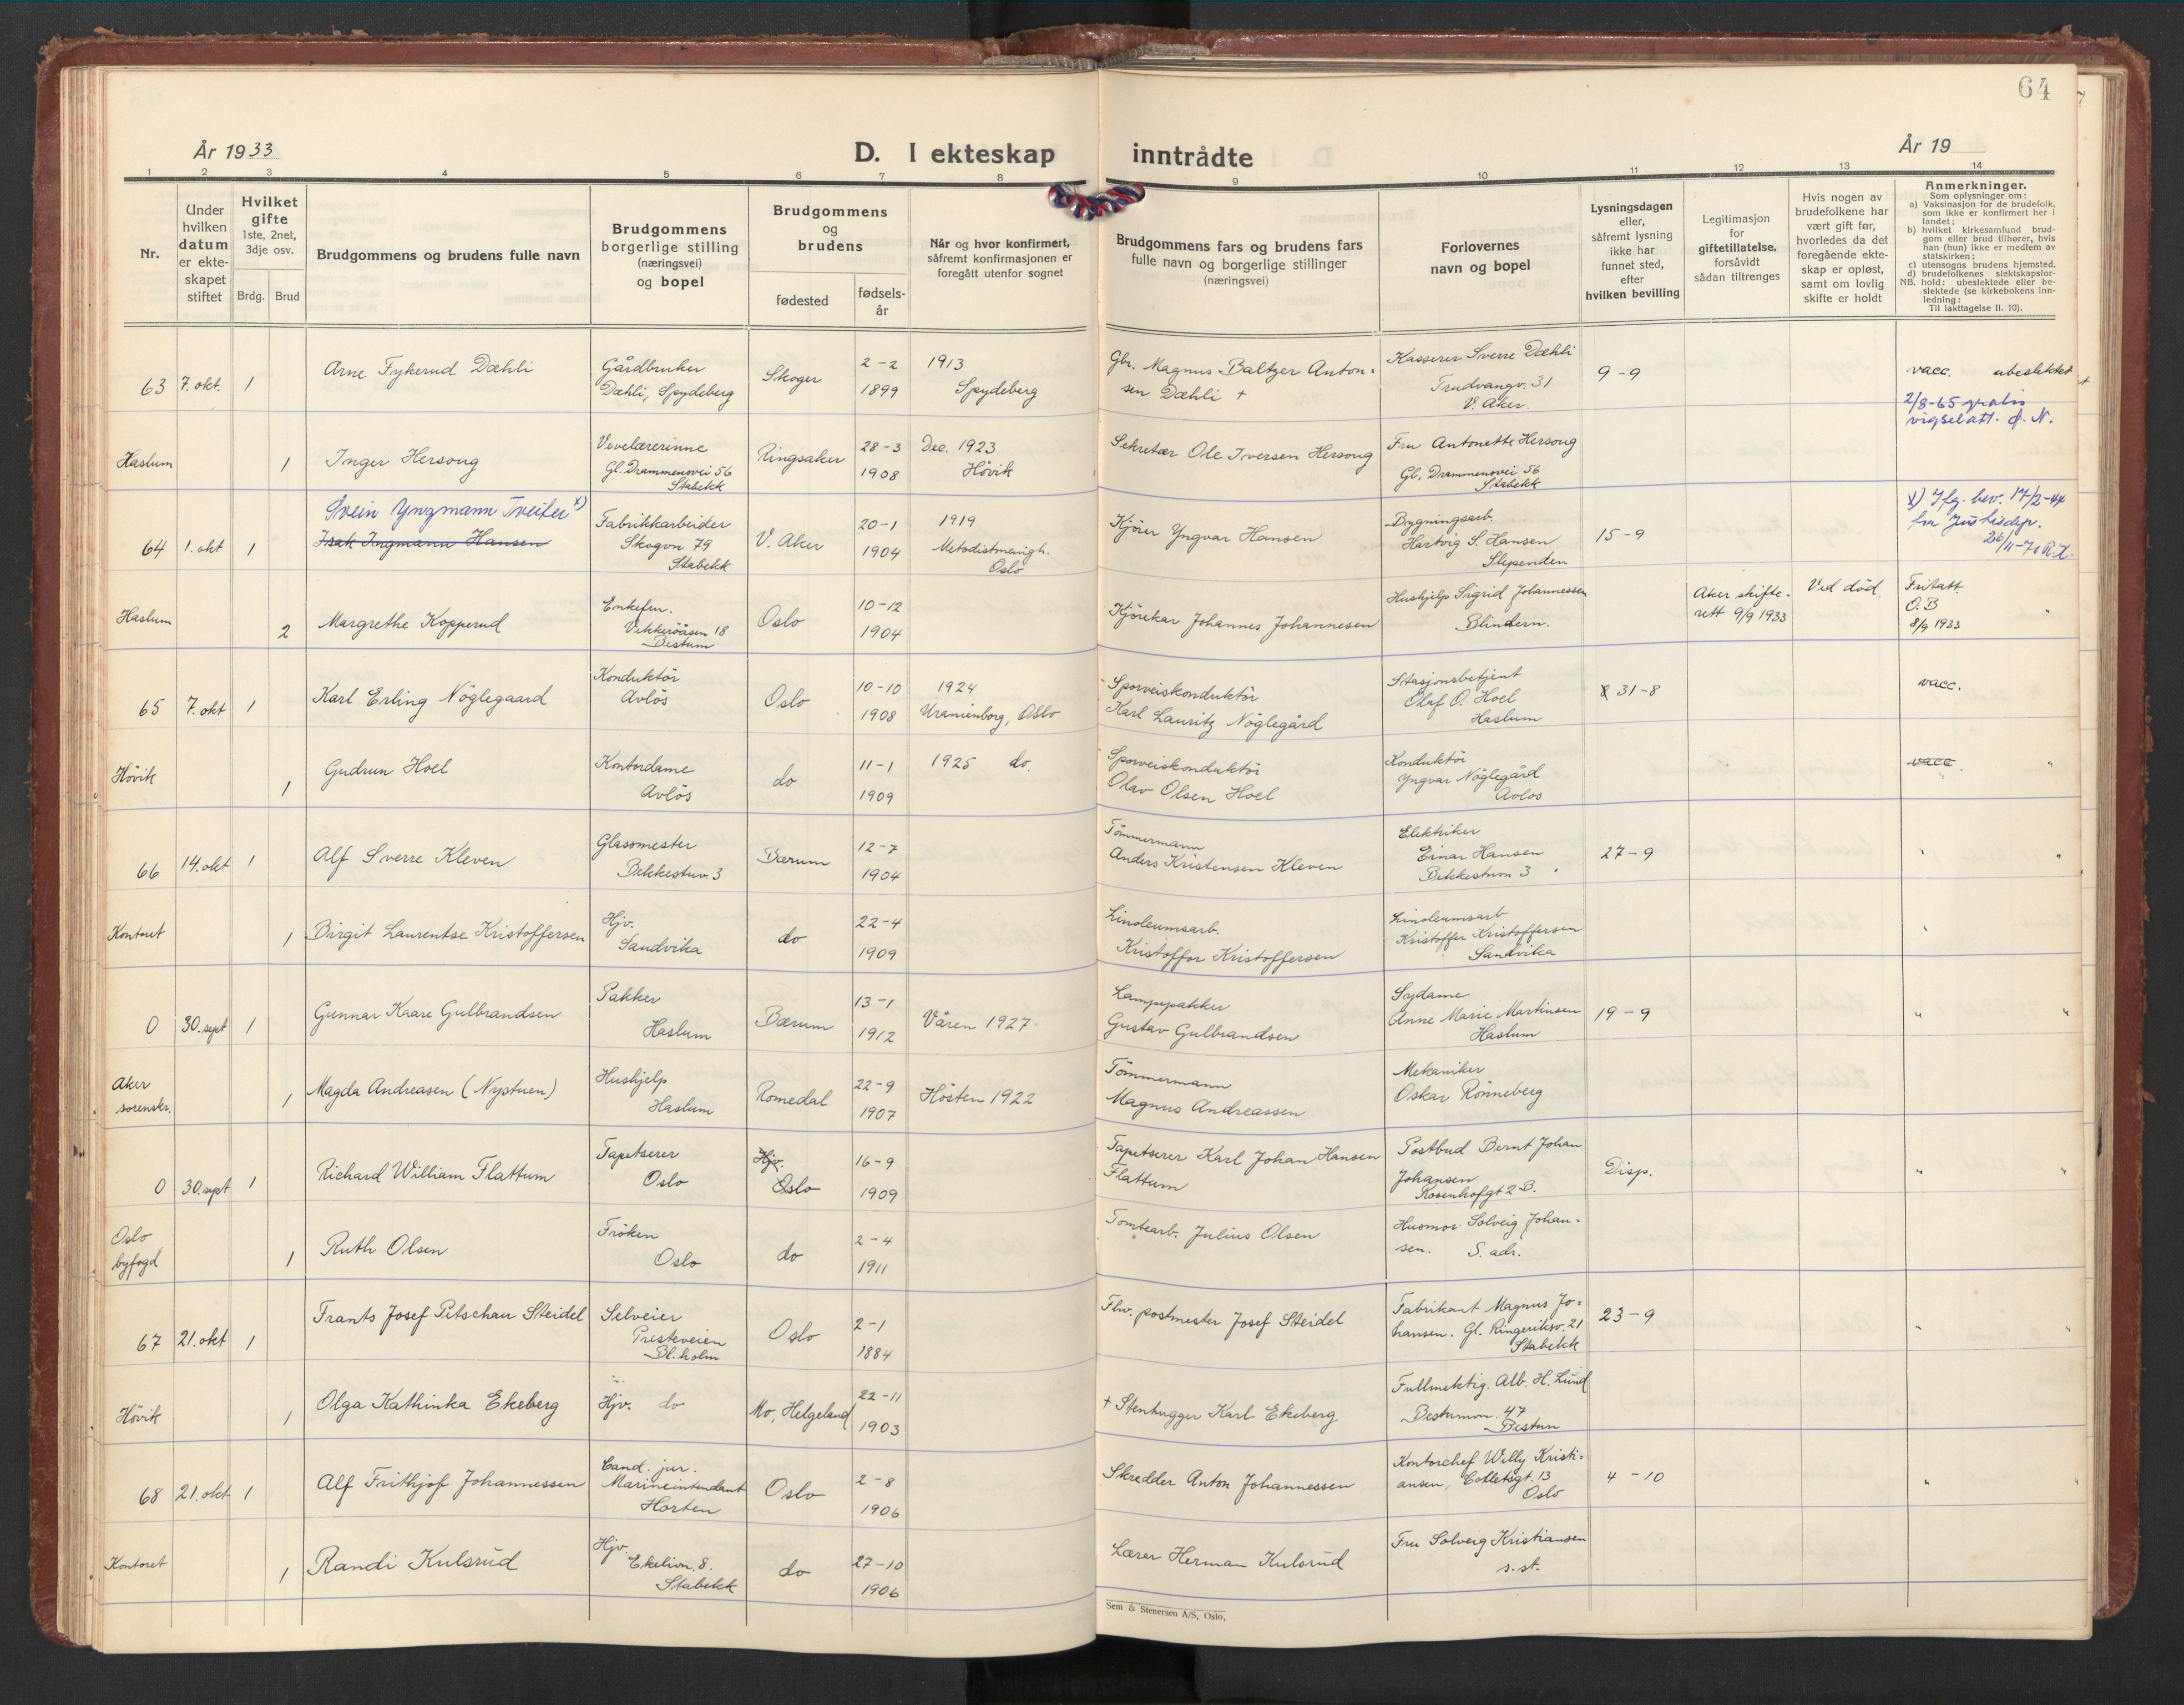 64
År 1933
D. I ekteskap inntrådte
År 19
1 2 3 4 5 6 7 8 9 10 11 12 13 14
Nr.
Under
hvilken
datum
er ekte-
skapet
stiftet
Hvilket
gifte
1ste, 2net,
3dje osv.
Brdg. Brud
Brudgommens og brudens fulle navn
Brudgommens
borgerlige stilling
(næringsvei)
og bopel
Brudgommens
og
brudens
fødested
fødsels-
år
Når og hvor konfirmert,
såfremt konfirmasjonen er
foregått utenfor sognet
Brudgommens fars og brudens fars
fulle navn og borgerlige stillinger
(næringsvei)
Forlovernes
navn og bopel
Lysningsdagen
eller,
såfremt lysning
ikke har
funnet sted,
efter
hvilken bevilling
Legitimasjon
for
giftetillatelse,
forsåvidt
sådan tiltrenges
Hvis nogen av
brudefolkene har
vært gift før,
hvorledes da det
foregående ekte-
skap er opløst,
samt om lovlig
skifte er holdt
Anmerkninger.
Som oplysninger om:
a) Vaksinasjon for de brudefolk,
som ikke er konfirmert her i
landet;
b) hvilket kirkesamfund brud-
gom eller brud tilhører, hvis
han (hun) ikke er medlem av
statskirken;
c) utensogns brudens hjemsted.
d) brudefolkenes slektskapsfor-
NB. hold: ubeslektede eller be-
slektede (se kirkebokens inn-
ledning:
Til iakttagelse II. 10).
63 7. okt. 1
Arne Fykerud Dæhli
Gårdbruker
Dæhli, Spydeberg
Skoger
2-2
1899
1913
Spydeberg
Gbr. Magnus Baltzer Anton-
sen Dæhli +
Kasserer Sverre Dæhli
Trudvangv. 31
V. Aker.
9-9
vacc. ubeslektet
2/8-65 gratis
vigselatt. A. N.
Haslum 1
Inger Hersoug
Vevelærerinne
Gl. Drammensvei 56
Stabekk
Ringsaker
28-3
1908
Dec. 1923
Hövik
Sekretær Ole Iversen Hersoug
Fru Antonette Hersoug
Gl. Drammensvei 56
Stabekk
Svein Yngmann Tveiter x)
64 1. okt 1
Isak Ingmann Hansen
Fabrikkarbeider
Skogvn 79
Stabekk
V. Aker
20-1
1904
1919
Metodistmenigh.
Oslo
Kjører Yngvar Hansen
Bygningsarb.
Hartvig S. Hansen
Slependen
15-9
x) Ifg. bev. 17/2-44
fra Justisdep.
26/11-70 R.K.
Haslum 2
Margrethe Kopperud
Enkefru.
Vekkeröåsen 18
Bestum
Oslo
10-12
1904
Kjörekar Johannes Johannesen
Hushjelp Sigrid Johannessen
Blindern.
Aker skifte-
rett 9/9 1933
Ved död.
Fritatt.
O.B
8/9 1933
"
65 7. okt 1
Karl Erling Nöglegaard
Konduktör
Avlös
Oslo
10-10
1908
1924
Uranienborg, Oslo
Sporveiskonduktör
Karl Lauritz Nöglegård
Stasjonsbetjent
Olaf O. Hoel
Haslum
31-8
vacc.
Hövik 1
Gudrun Hoel
Kontordame
Avlös
do
11-1
1909
1925 do.
Sporveiskonduktör
Olav Olsen Hoel
Konduktör
Yngvar Nöglegård
Avlos
vacc. "
66 14. okt 1
Alf Sverre Kleven
Glassmester
Bekkestuv. 3
Bærum
12-7
1904
Tömmermann
Anders Kristensen Kleven
Elektriker
Einar Hansen
Bekkestuvn 3
27-9
" "
Kontoret 1
Birgit Laurentse Kristoffersen
Hjv.
Sandvika
do
22-4
1909
Linoleumsarb.
Kristoffer Kristoffersen
Linoleumsarb
Kristoffer Kristoffersen
Sandvika
"
0 30. sept 1
Gunnar Kaare Gulbrandsen
Pakker
Haslum
Bærum
13-1
1912
Våren 1927.
Lampepakker
Gustav Gulbrandsen
Sydame
Anne Marie Martinsen
Haslum
19-9
" "
Aker
sorenskr. 1
Magda Andreasen (Nystuen)
Hushjelp
Haslum
Romedal
22-9
1907
Hösten 1922
Tömmermann
Magnus Andreassen
Mekaniker
Oskar Rönneberg
0 30. sept 1
Richard William Flattum
Tapetserer
Oslo
Hjv.
Oslo
16-9
1909
Tapetserer Karl Johan Hansen
Flattum
Postbud Bernt Johan
Johansen
Rosenhofgt 2 B.
Disp.
" "
Oslo
byfogd 1
Ruth Olsen
Fröken
Oslo
do
2-4
1911
Tomtearb. Julius Olsen
Husmor Solveig Johan-
sen. S. adr.
67 21. okt 1
Frants Josef Petschau Steidel
Selveier
Presteveien
Bl. holm
Oslo
2-1
1884
Fhv. postmester Josef Steidel
Fabrikant Magnus Jo-
hansen. Gl. Ringeriksv. 21
Stabekk
23-9
" "
Hövik 1
Olga Kathinka Ekeberg
Hjv. do
Mo, Helgeland
22-11
1903
+ Stenhugger Karl Ekeberg
Fullmektig. Alb. H. Lund
Bestumvn. 47
Bestun
68 21. okt 1
Alf Frithjof Johannessen
Cand. jur.
Marineintendant
Horten
Oslo
2-8
1906
Skredder Anton Johannessen
Kontorchef Willy Kristi-
ansen, Colletsgt. 13
Oslo
4-10
" "
Kontoret 1
Randi Kulsrud
Hjv.
Ekelivn. 8.
Stabekk
do
27-10
1906
Lærer Herman Kulsrud
Fru Solveig Kristiansen
s. st.
Sem & Stenersen A/S, Oslo.